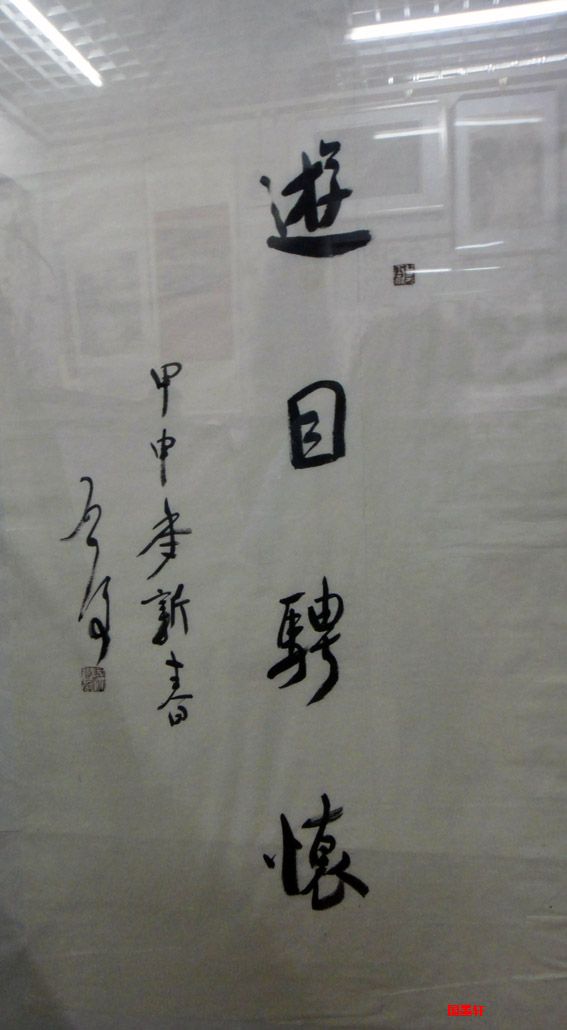 遊目騁懷
甲申年新春
国墨轩